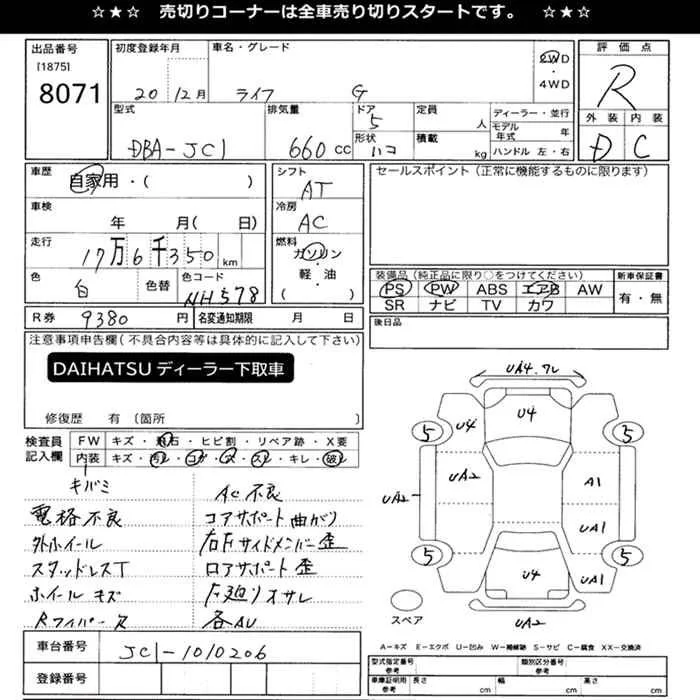 ☆★☆ 売切りコーナーは全車売り切りスタートです。 ☆★☆
出品番号
[1875]
8071
初度登録年月
20 12月
車名・グレード
ライフ G
2WD
・
4WD
評価点
R
外装 内装
D C
型式
DBA-JC1
排気量
660 cc
ドア
5
形状
ハコ
定員
人
積載
kg
ディーラー・並行
モデル年式 年
ハンドル 左・右
車歴
自家用・( )
車検
年 月( 日)
走行
17万6千350km
色
白
色替
色コード
NH578
シフト
AT
冷房
AC
燃料
ガソリン
・
軽・油
( )
セールスポイント(正常に機能するものに限ります)
装備品(純正品に限り○をつけてください)
PS PW ABS エアB AW
SR ナビ TV カワ
新車保証書
有・無
R券 9380 円
名変通知期限 月 日
後日品
注意事項申告欄(不具合内容等は具体的に記入して下さい)
DAIHATSU ディーラー下取車
修復歴 有(箇所 )
検査員
記入欄
FW キズ・飛石・ヒビ割・リペア跡・X要
内装 キズ・汚レ・コゲ・ヌ・スレ・キレ・破レ
キバミ
電格不良
外ホイール
スタッドレスT
ホイールキズ
Rワイパーヌ
AC不良
コアサポート曲がり
右Fサイドメンバー歪
ロアサポート歪
F廻りオサレ
各AU
UA4.ワレ
U4
U4
5
5
UA2
UA2
A1
UA1
5
5
U4
UA1
UA2
スペア
A-キズ E-エクボ U-凹み W-補修跡 S-サビ C-腐食 XX-交換済
車台番号
JC1-1010206
登録番号
型式指定番号
参考
類別区分番号
参考
車庫証明用
参考
長さ cm
幅 cm
高さ cm